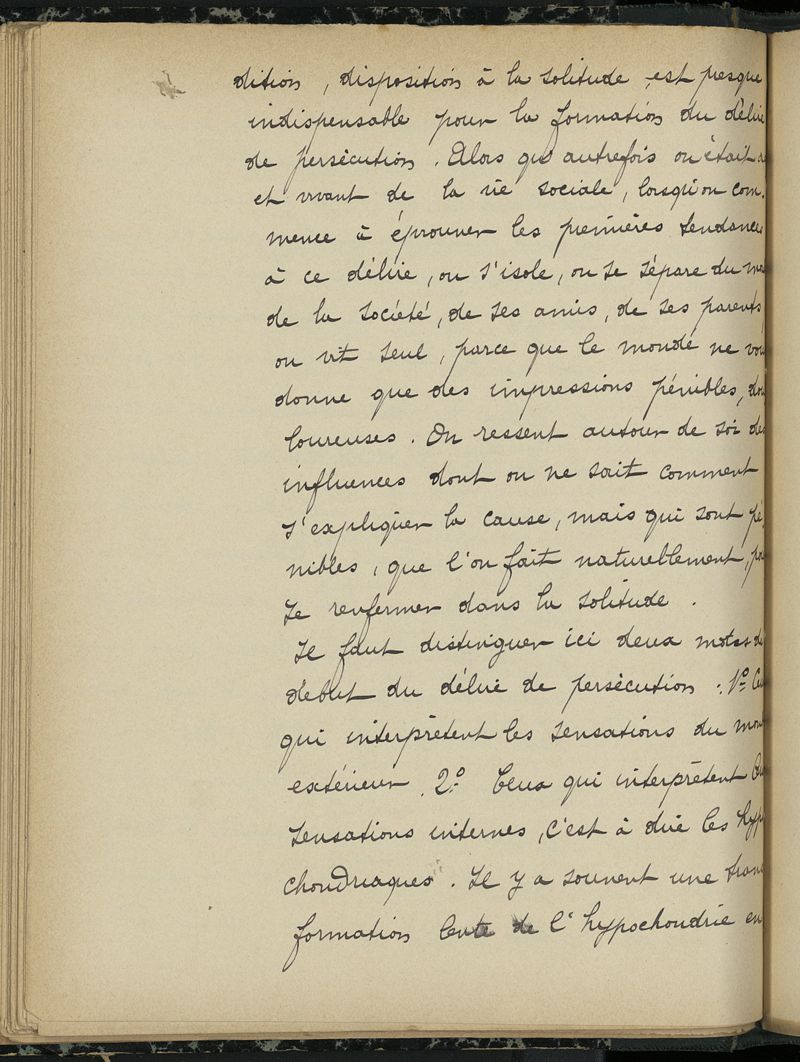 dition, disposition à la solitude, est presque
indispensable pour la formation du délire
de persécution. Alors qu'autrefois on était
et vivant de la vie sociale, lorsqu'on com-
mence à éprouver les premières tendances
à ce délire, on s'isole, on se sépare du
de la société, de ses amis, de ses parents,
on vit seul, parce que le monde ne vou
donne que des impressions pénibles, dou
loureuses. On ressent autour de soi des
influences dont on ne sait comment
s'expliquer la cause, mais qui sont pé
nibles, que l'on fait naturellement, pa
se renfermer dans la solitude.
Il faut distinguer ici deux modes de
début du délire de persécution : 1º Ceu
qui interprètent les sensations du mon
extérieur 2º Ceux qui interprètent
sensations internes, c'est à dire les hypo
chondriaques. Il y a souvent une trans
formation lente de l'hypochondrie en